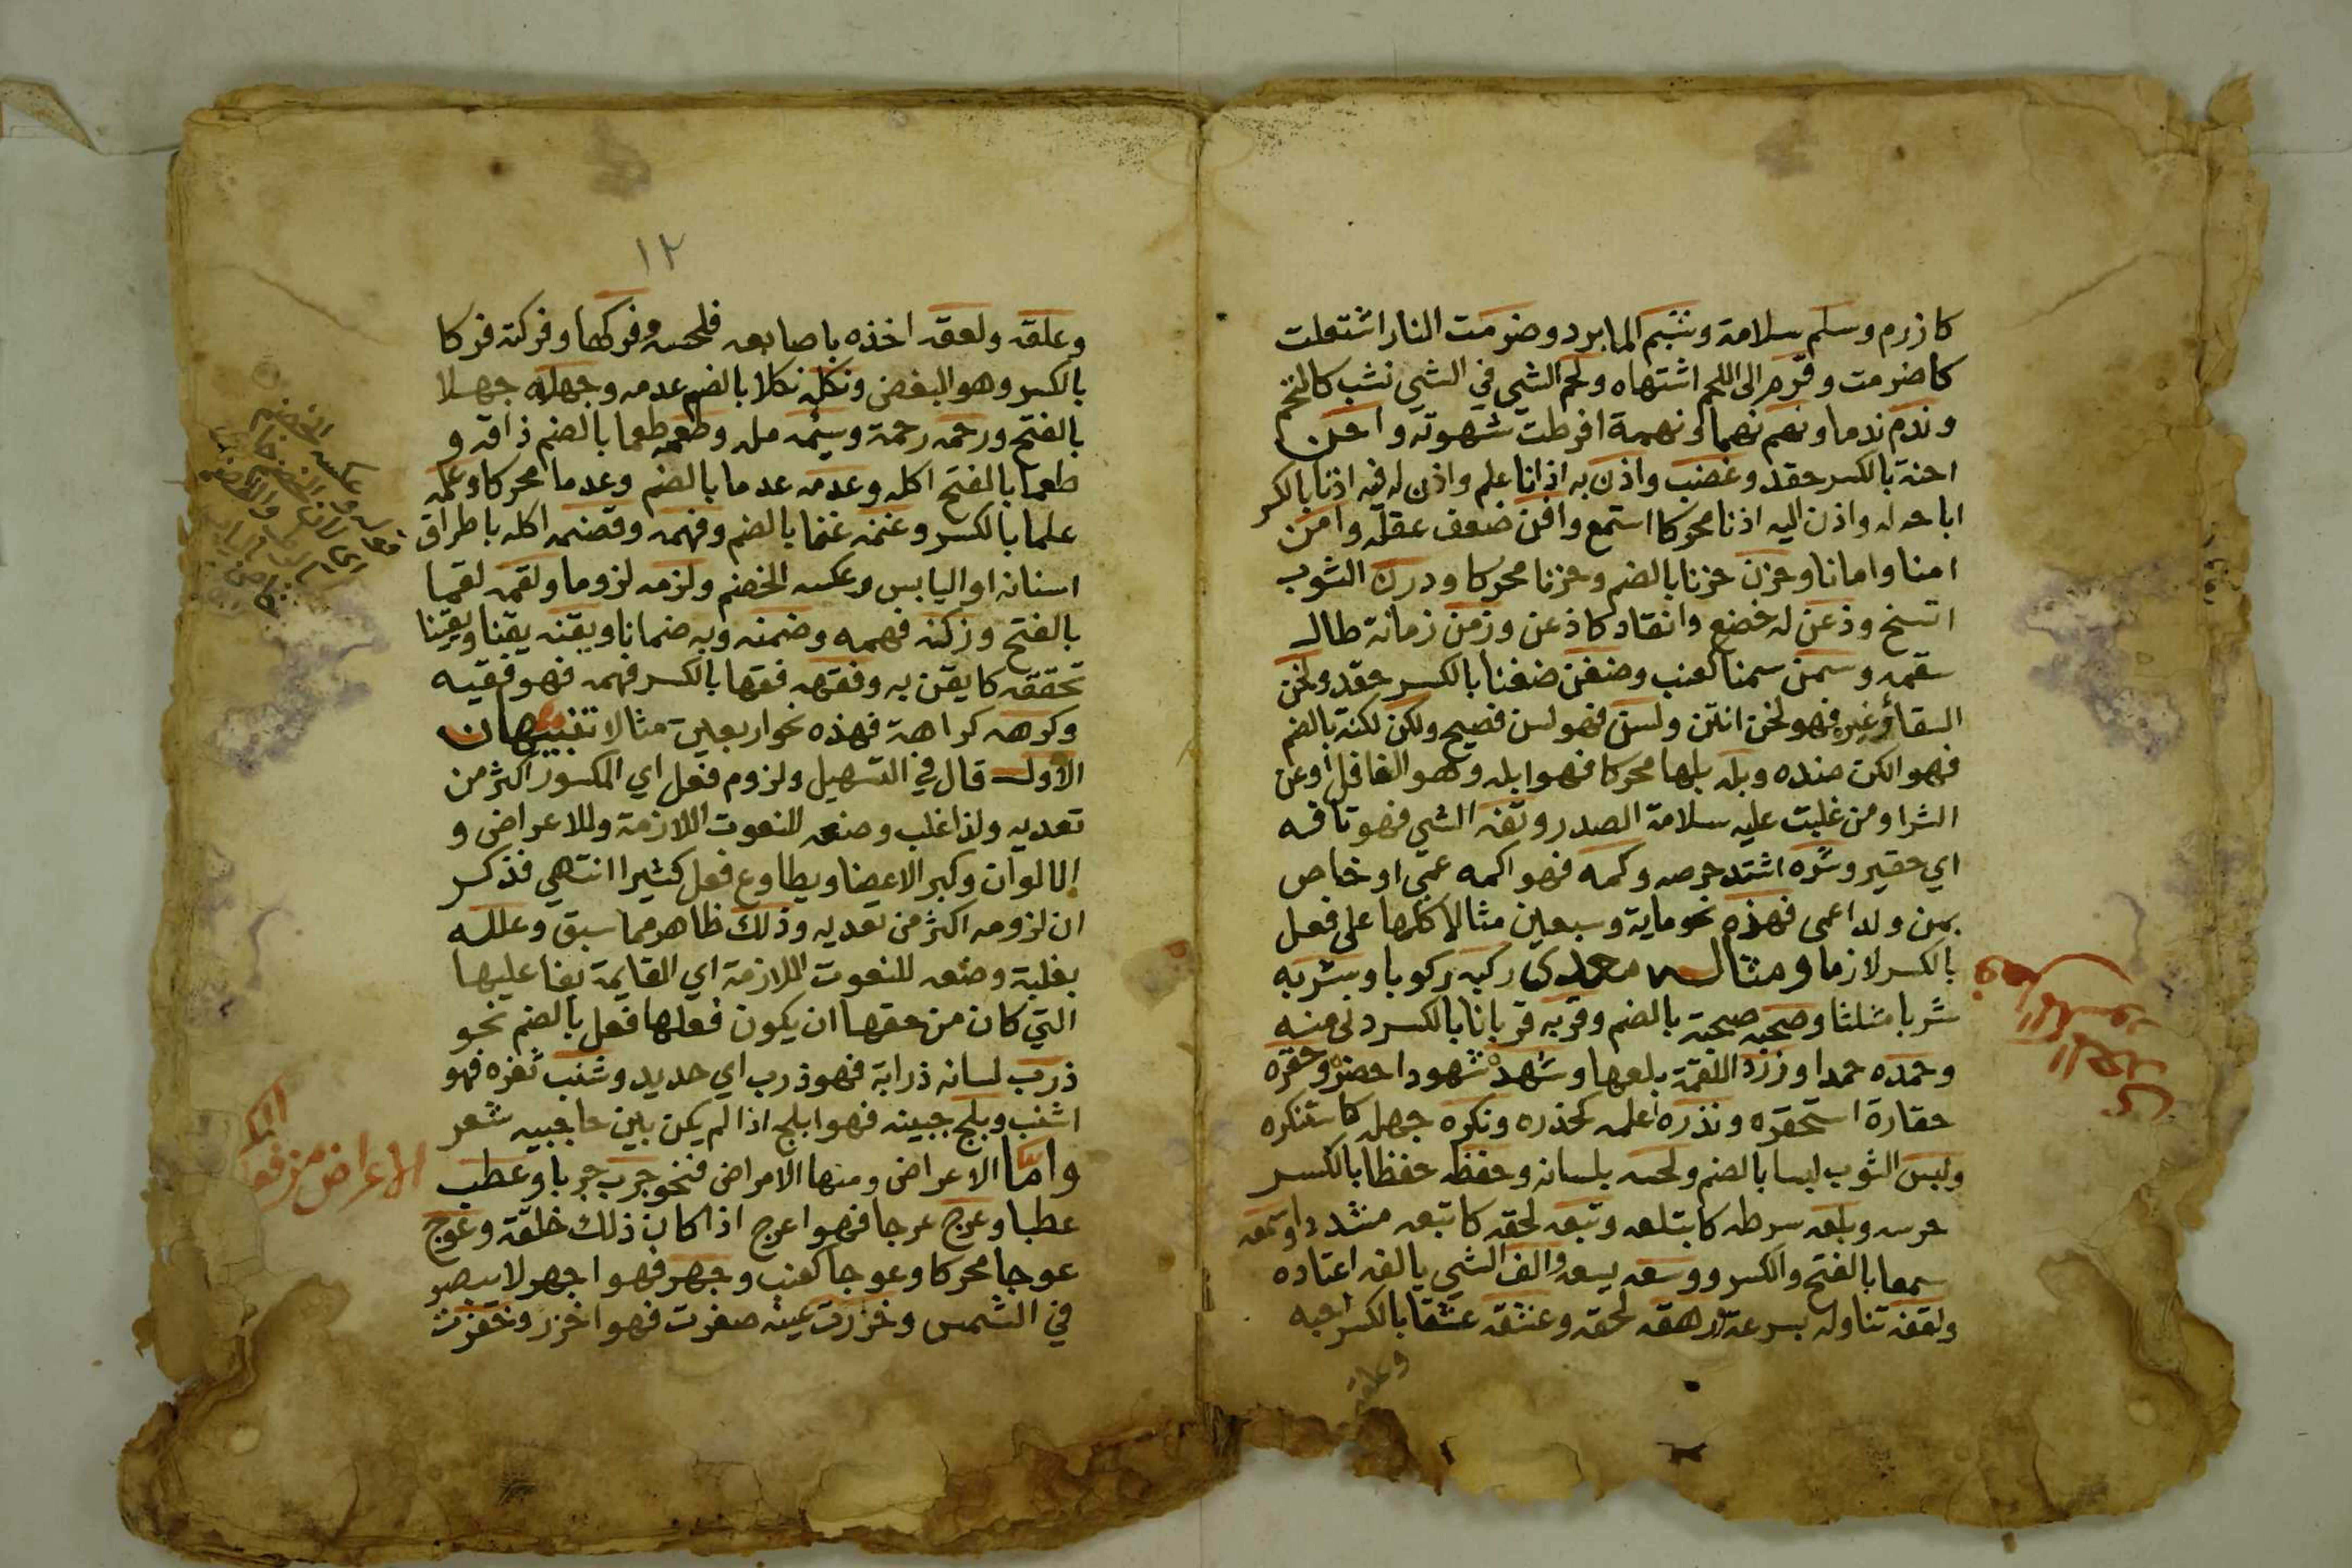 كازرم وسلم سلامة وشبم الما برد وضرمت النار اشتعلت
كاضرمت وقرم الى اللحم اشتهاه ولحم الشي في الشي نشب كالتحم
وندم ندما ونهم نهما ونهمة افرطت شهوته واحن
احنة بالكسر حقد وغضب واذن به اذانا علم واذن له فيه اذنا بالكسر
اباحه له واذن اليه اذنا محركا استمع وافن ضعف عقله وامن
امنا وامانا وحزن حزنا بالضم وحزنا محركا ودرن الثوب
اتسخ وذعن له خضع وانقاد كاذعن وزمن زمانة طال
سقمه وسمن سمنا كعنب وضغن ضغنا بالكسر حقد ولخن
السقا وغيره فهو لخن انتن ولسن فهو لسن فصيح ولكن لكنة بالضم
فهو الكن ضده وبله بلها محركا فهو ابله وهو الغافل او عن
الشر او من غلبت عليه سلامة الصدر وتفه الشي فهو تافه
اي حقير وشره اشتد حرصه وكمه فهو اكمه عمي او خاص
بمن ولد اعمى فهذه نحو ماية وسبعين مثالا كلها على فعل
بالكسر لازما ومثاله معدى ركبه ركوبا وشربه
شربا مثلثا وصحبه صحبة بالضم وقربه قربانا بالكسر دنى منه
وحمده حمدا وزرد اللقمة بلعها وشهده شهودا حضره وحقره
حقارة استحقره ونذره علمه كحذره ونكره جهله كاستنكره
ولبس الثوب لبسا بالضم ولحسه بلسانه وحفظه حفظا بالكسر
حرسه وبلعه سرطه كابتلعه وتبعه لحقه كاتبعه مشددا وسمعه
سمعا بالفتح والكسر ووسعه يسعه والف الشي يالفه اعتاده
ولقفه تناوله بسرعة ورهقه لحقه وعشقه عشقا بالكسر احبه
وعلقه
١٢
وعلقه ولعقه اخذه باصابعه فلحسه وفركها وفركته فركا
بالكسر وهو البغض ونكله نكلا بالضم عدمه وجهله جهلا
بالفتح ورحمه رحمة وسيمه مله وطعمه طعما بالضم ذاقه و
طعما بالفتح اكله وعدمه عدما بالضم وعدما محركا وعلمه
علما بالكسر وغنمه غنما بالضم وفهمه وقضمه اكله باطراف
اسنانه او اليابس وعكسه الخضم ولزمه لزوما ولقمه لقما
بالفتح وزكنه فهمه وضمنه وبه ضمانا ويقنه يقنا ويقينا
تحققه كايقن به وفقهه فقها بالكسر فهمه فهو فقيه
وكرهه كراهة فهذه نحو اربعين مثالا تنبيهان
الاول قال في التسهيل ولزوم فعل اي المكسور اكثر من
تعديه ولذا غلب وضعه للنعوت اللازمة وللاعراض و
الالوان وكبر الاعضا ويطاوع فعل كثيرا انتهي فذكر
ان لزومه اكثر من تعديه وذلك ظاهر مما سبق وعلله
بغلبة وضعه للنعوت اللازمة اي القايمة بفاعليها
التي كان من حقها ان يكون فعلها فعل بالضم نحو
ذرب لسانه ذرابة فهو ذرب اي حديد وشنب ثغره فهو
اشنب وبلج جبينه فهو ابلج اذا لم يكن بين حاجبيه شعر
واما الاعراض ومنها الامراض فنحو جرب جربا وعطب
عطبا وعرج عرجا فهو اعرج اذا كان ذلك خلقة وعوج
عوجا محركا وعوجا كعنب وجهر فهو اجهر لا يبصر
في الشمس وخزرت عينه صغرت فهو اخزر وخفرت
الاعراض من فعل